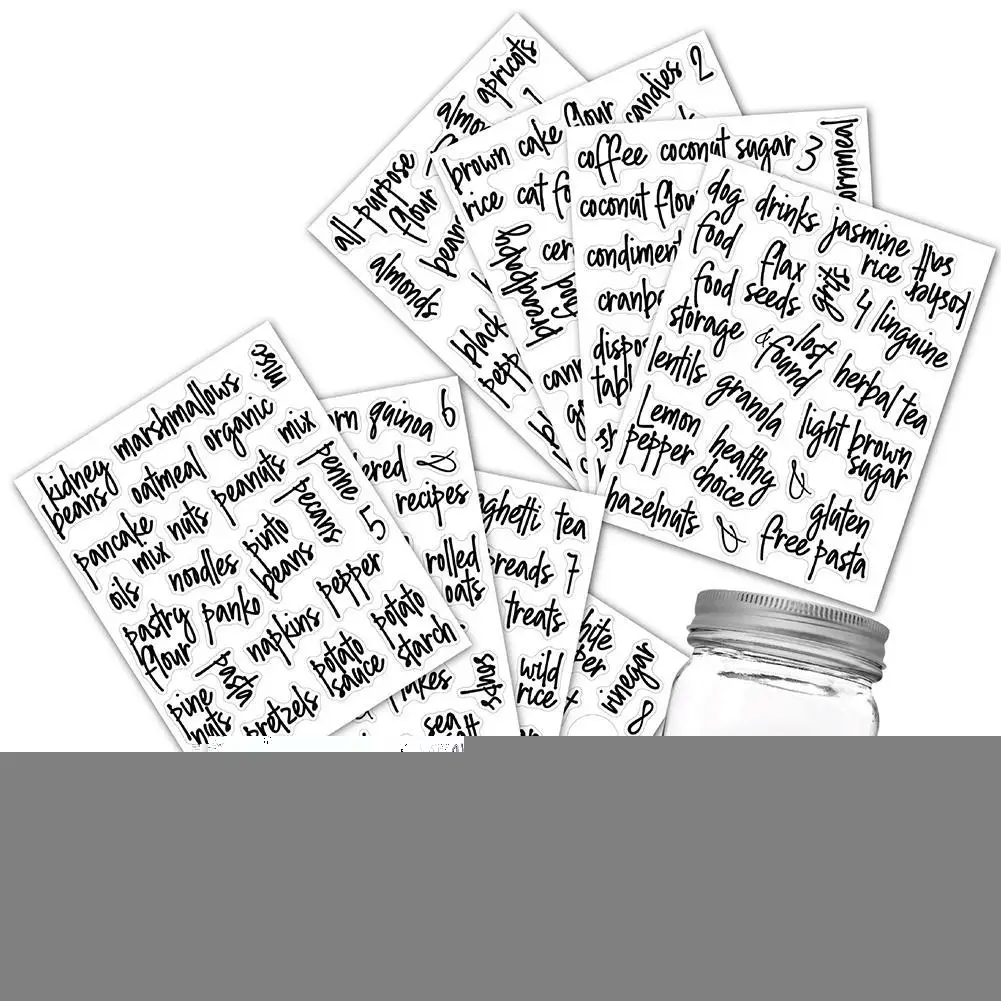 apricots
1
all-purpose
flour
almonds
black
2
candies
brown
rice
cake flour
bread
coffee
coconut sugar
3
coconut
dog
food
drinks
jasmine
rice
kosher
salt
food
storage
flax
seeds
grits
4
linguine
lentils
&
lost
found
herbal tea
granola
Lemon
pepper
healthy
choice
light brown
sugar
&
hazelnuts
&
gluten
free pasta
kidney
beans
marshmallows
misc.
oatmeal
organic
mix
pancake
mix
nuts
peanuts
penne
oils
noodles
pinto
beans
pecans
5
pastry
flour
panko
napkins
pepper
pasta
potato
sauce
potato
starch
pine
nuts
pretzels
quinoa
6
&
recipes
rolled
oats
tea
7
treats
wild
rice
sea
vinegar
8